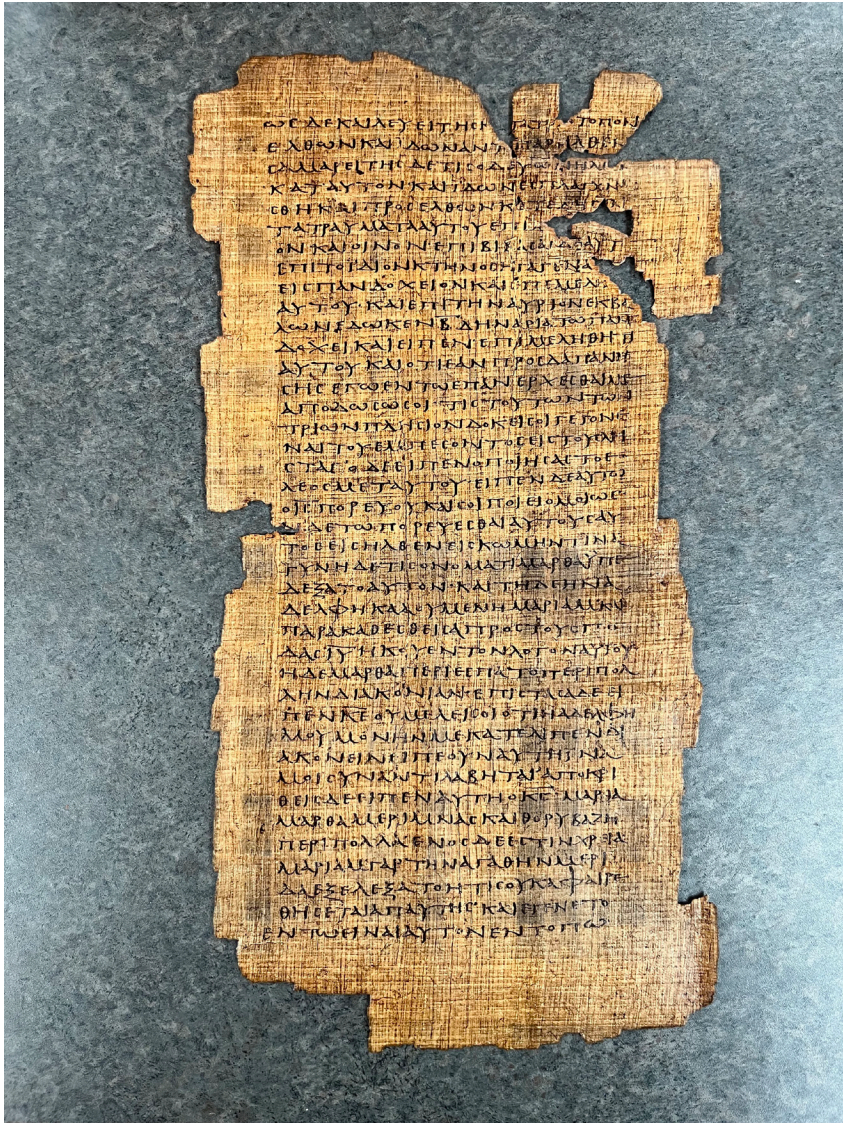 ΩϹΔΕΚΑΙΛΕΥΕΙΤΗϹ ΤΟΠΟΝ
ΕΛΘΩΝΚΑΙΙΔΩΝΑΝΤΙΠΑΡΗΛΘΕΝ
ϹΑΜΑΡΕΙΤΗϹΔΕΤΙϹΟΔΕΥΩΝΗΛΘΕ
ΚΑΤΑΥΤΟΝΚΑΙΙΔΩΝΕϹΠΛΑΓΧΝΙ
ϹΘΗΚΑΙΠΡΟϹΕΛΘΩΝΚΑΤΕΔΗϹΕ
ΤΑΤΡΑΥΜΑΤΑΑΥΤΟΥΕΠΙΧ
ΟΝΚΑΙΟΙΝΟΝΕΠΙΒΙΒΑϹΑϹΔΕΑΥΤ
ΕΠΙΤΟΙΔΙΟΝΚΤΗΝΟϹΗΓΑΓΕΝΑΥΤ
ΕΙϹΠΑΝΔΟΧΕΙΟΝΚΑΙΕΠΕΜΕΛΗ
ΑΥΤΟΥ·ΚΑΙΕΠΙΤΗΝΑΥΡΙΟΝΕΚΒΑ
ΛΩΝΕΔΩΚΕΝΒ̅ΔΗΝΑΡΙΑΤΩΠΑΝ
ΔΟΧΕΙΚΑΙΕΙΠΕΝΕΠΙΜΕΛΗΘΗΤΙ
ΑΥΤΟΥΚΑΙΟΤΙΕΑΝΠΡΟϹΔΑΠΑΝΗ
ϹΗϹΕΓΩΕΝΤΩΕΠΑΝΕΡΧΕϹΘΑΙΜΕ
ΑΠΟΔΩϹΩϹΟΙ·ΤΙϹΤΟΥΤΩΝΤΩΝ
ΤΡΙΩΝΠΛΗϹΙΟΝΔΟΚΕΙϹΟΙΓΕΓΟΝΕ
ΝΑΙΤΟΥΕΜΠΕϹΟΝΤΟϹΕΙϹΤΟΥϹΛΗ
ϹΤΑϹ·ΟΔΕΕΙΠΕΝΟΠΟΙΗϹΑϹΤΟΕ
ΛΕΟϹΜΕΤΑΥΤΟΥ·ΕΙΠΕΝΔΕΑΥΤΩ
ΟΙ̅Ϲ̅ΠΟΡΕΥΟΥΚΑΙϹΟΙΠΟΙΕΙΟΜΟΙΩϹ
ΕΝΔΕΤΩΠΟΡΕΥΕϹΘΑΙΑΥΤΟΥϹΑΥ
ΤΟϹΕΙϹΗΛΘΕΝΕΙϹΚΩΜΗΝΤΙΝΑ
ΓΥΝΗΔΕΤΙϹΟΝΟΜΑΤΙΜΑΡΘΑΫΠΕ
ΔΕΞΑΤΟΑΥΤΟΝ·ΚΑΙΤΗΔΕΗΝΑ
ΔΕΛΦΗΚΑΛΟΥΜΕΝΗΜΑΡΙΑΜΚΑΙ
ΠΑΡΑΚΑΘΕϹΘΕΙϹΑΠΡΟϹΤΟΥϹΠΟ
ΔΑϹΙ̅Υ̅ΗΚΟΥΕΝΤΟΝΛΟΓΟΝΑΥΤΟΥ
ΗΔΕΜΑΡΘΑΠΕΡΙΕϹΠΑΤΟΠΕΡΙΠΟΛ
ΛΗΝΔΙΑΚΟΝΙΑΝ·ΕΠΙϹΤΑϹΑΔΕΕΙ
ΠΕΝΚ̅Ε̅ΟΥΜΕΛΕΙϹΟΙΟΤΙΗΑΔΕΛΦΗ
ΜΟΥΜΟΝΗΝΜΕΚΑΤΕΛΙΠΕΝΔΙ
ΑΚΟΝΕΙΝΕΙΠΕΟΥΝΑΥΤΗΙΝΑ
ΜΟΙϹΥΝΑΝΤΙΛΑΒΗΤΑΙ·ΑΠΟΚΡΙ
ΘΕΙϹΔΕΕΙΠΕΝΑΥΤΗΟΚ̅Ϲ̅ΜΑΡΘΑ
ΜΑΡΘΑΜΕΡΙΜΝΑϹΚΑΙΘΟΡΥΒΑΖΗ
ΠΕΡΙΠΟΛΛΑΕΝΟϹΔΕΕϹΤΙΝΧΡΕΙΑ
ΜΑΡΙΑΜΓΑΡΤΗΝΑΓΑΘΗΝΜΕΡΙ
ΔΑΕΞΕΛΕΞΑΤΟΗΤΙϹΟΥΚΑΦΑΙΡΕ
ΘΗϹΕΤΑΙΑΠΑΥΤΗϹ·ΚΑΙΕΓΕΝΕΤΟ
ΕΝΤΩΕΙΝΑΙΑΥΤΟΝΕΝΤΟΠΩ